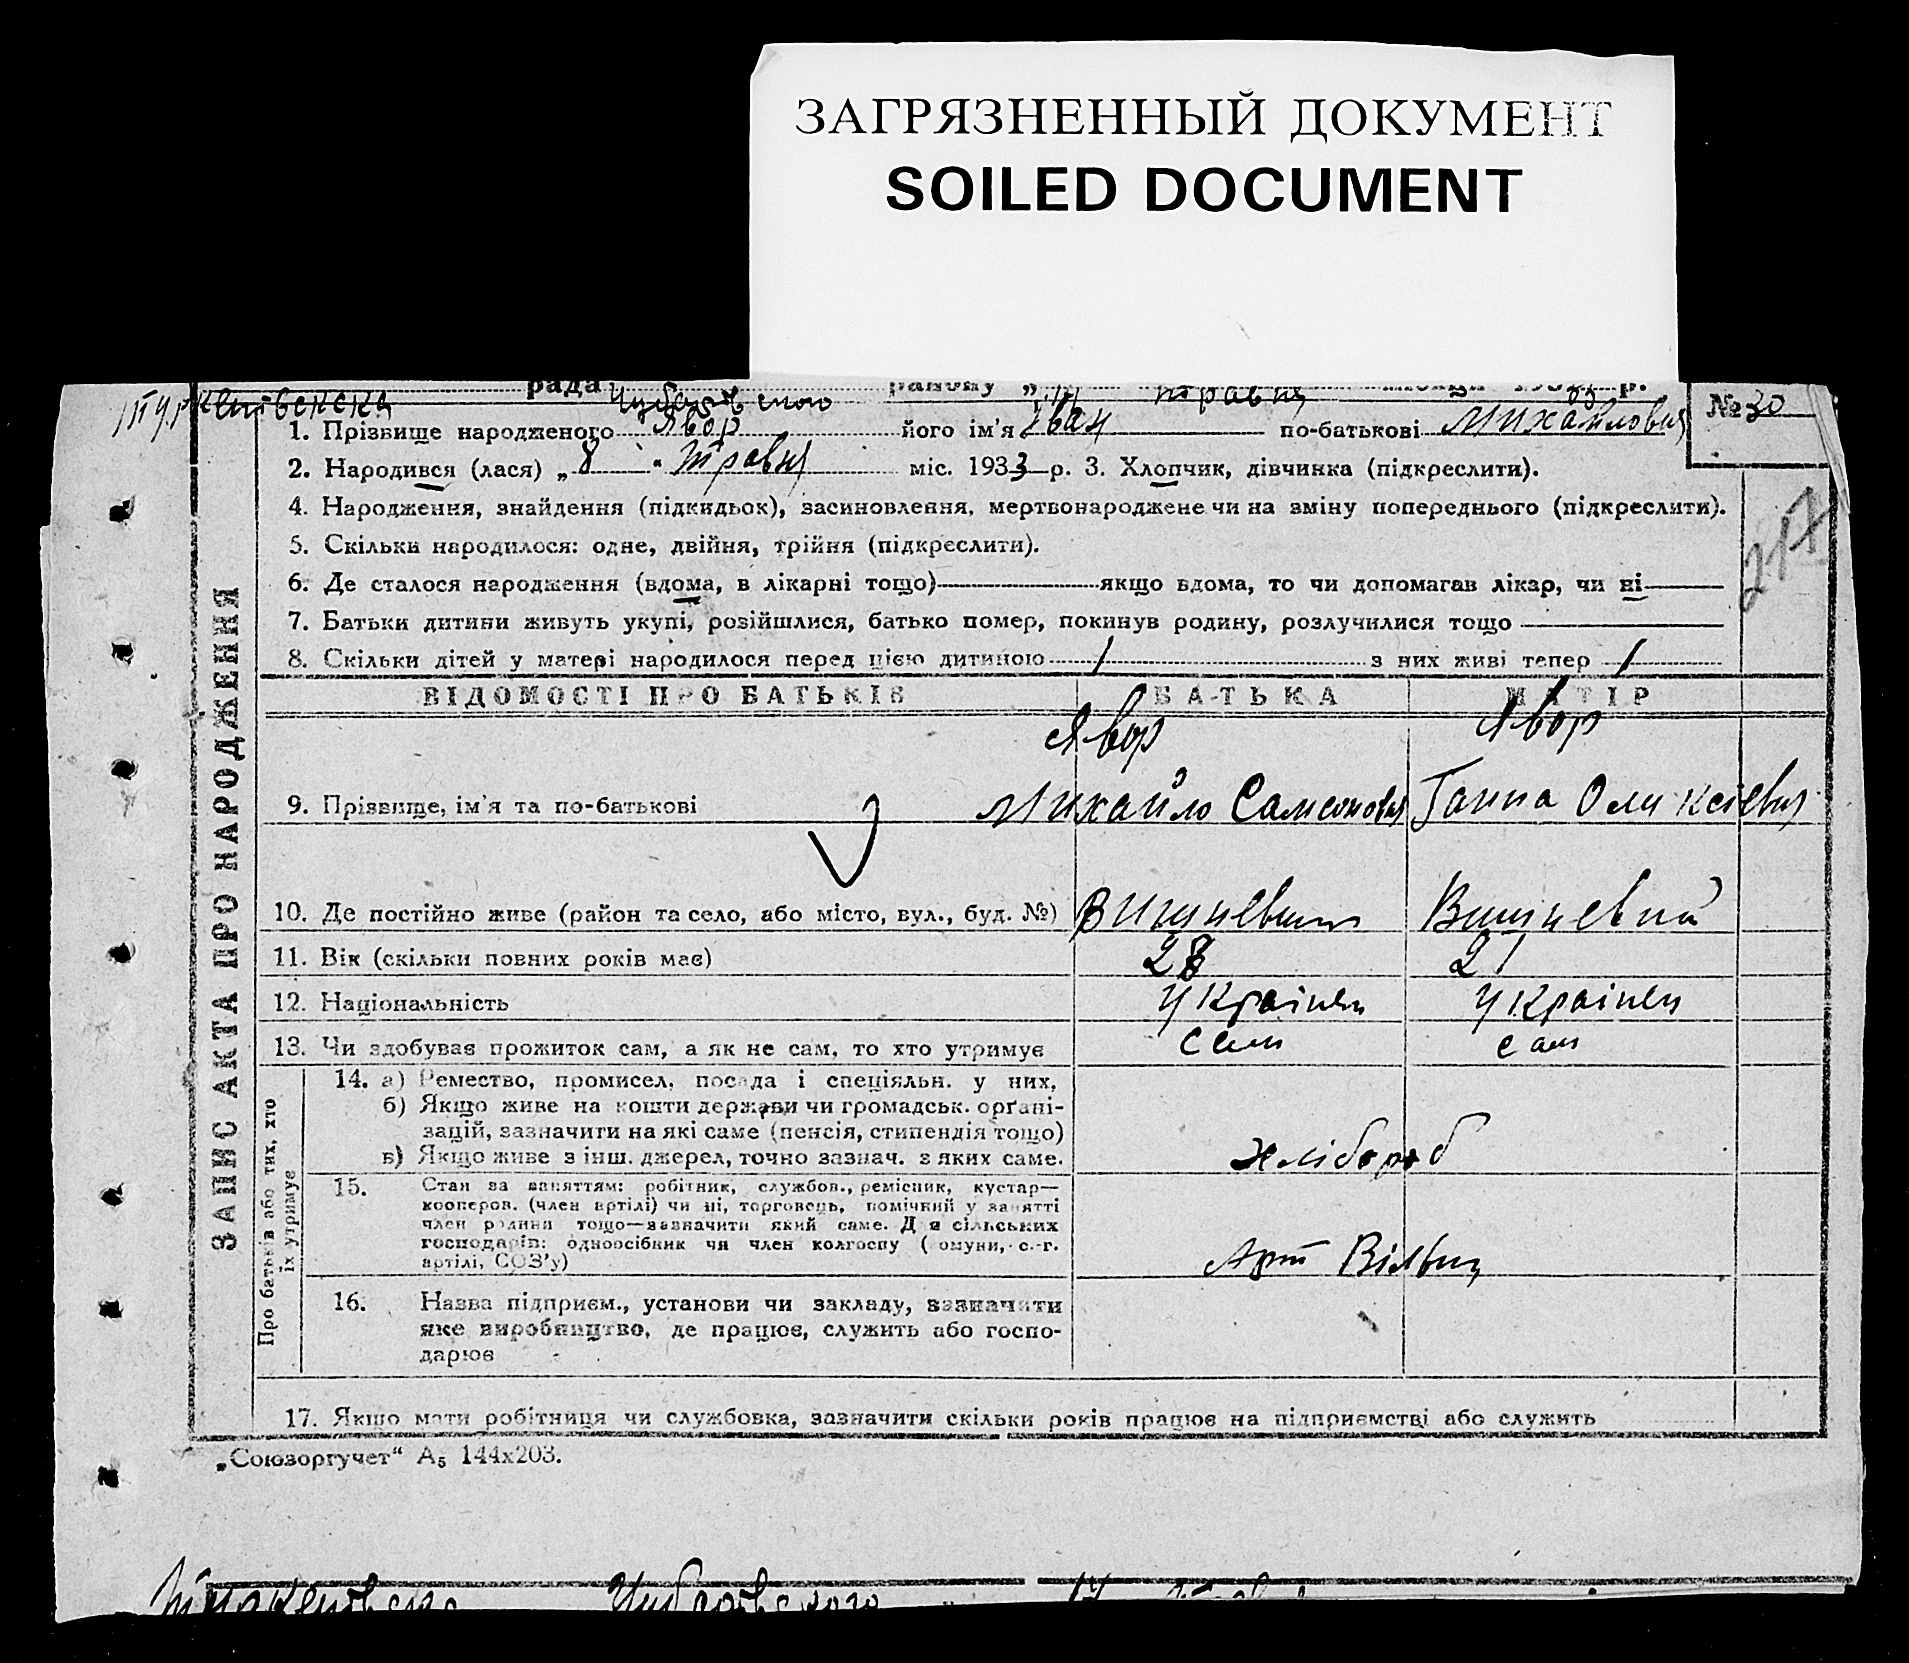 ЗАГРЯЗНЕННЫЙ ДОКУМЕНТ
SOILED DOCUMENT
рада Чубарівського району „14 травня місяця 193 р.
№ 30
1. Прізвище народженого Явор його ім'я Іван по-батькові Михайлович
2. Народився (лася) „8 " травня міс. 1933 р. 3. Хлопчик, дівчинка (підкреслити).
4. Народження, знайдення (підкидьок), засиновлення, мертвонароджене чи на зміну попереднього (підкреслити).
217
5. Скільки народилося: одне, двійня, трійня (підкреслити).
6. Де сталося народження (вдома, в лікарні тощо) якщо вдома, то чи допомагав лікар, чи ні
7. Батьки дитини живуть укупі, розійшлися, батько помер, покинув родину, розлучилися тощо
8. Скільки дітей у матері народилося перед цією дитиною 1 з них живі тепер 1
ЗАПИС АКТА ПРО НАРОДЖЕННЯ
ВІДОМОСТІ ПРО БАТЬКІВ БАТЬКА МАТІР
Явор Явор
9. Прізвище, ім'я та по-батькові Михайло Самсонович Ганна Олексіевня
10. Де постійно живе (район та село, або місто, вул., буд. №) Вишневий Вишневий
11. Вік (скільки повних років має) 28 21
12. Національність Українец Українец
13. Чи здобуває прожиток сам, а як не сам, то хто утримує сам сам
Про батьків або тих, хто їх утримує
14. а) Ремество, промисел, посада і спеціяльн. у них,
б) Якщо живе на кошти держави чи громадськ. орґані-
зацій, зазначити на які саме (пенсія, стипендія тощо)
в) Якщо живе з інш. джерел, точно зазнач. з яких саме. хлібороб
15. Стан за заняттям: робітник, службов., ремісник, кустар—
кооперов. (член артілі) чи ні, торговець, помічний у занятті
член родини тощо—зазначити який саме. Для сільських
господарів: одноосібник чи член колгоспу (комуни, с.-г.
артілі, СОЗ'у) Арт
16. Назва підприєм., установи чи закладу, зазначити
яке виробництво, де працює, служить або госпо-
дарює
17. Якщо мати робітниця чи службовка, зазначити скільки років працює на підприємстві або служить
„Союзоргучет“ А₅ 144х203.
Чубарівського 14